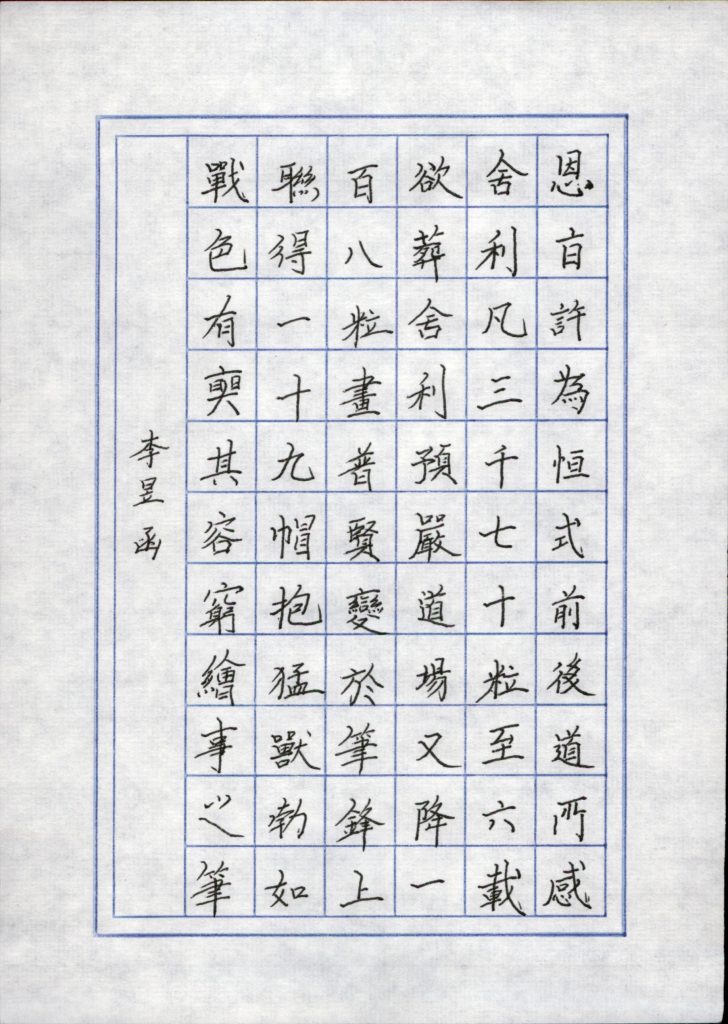 恩旨許為恒式前後道所感
舍利凡三千七十粒至六載
欲葬舍利預嚴道場又降一
百八粒畫普賢變於筆鋒上
聯得一十九帽抱猛獸勃如
戰色有奭其容窮繪事之筆
李昱函